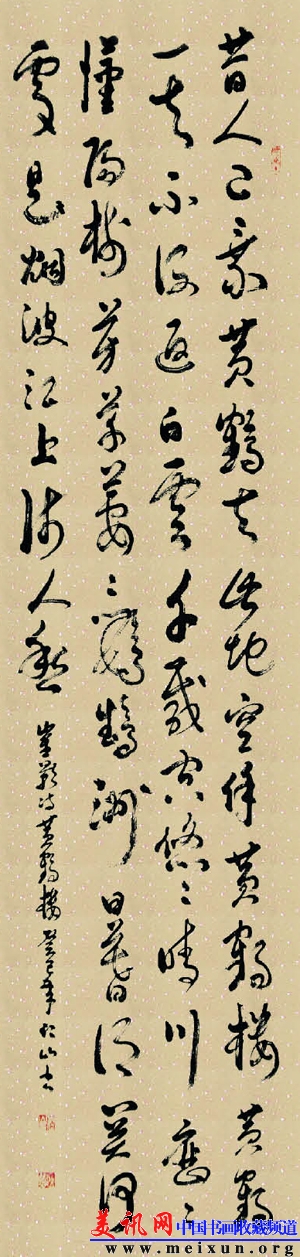 昔人已乘黄鶴去此地空餘黄鶴樓黄鶴
一去不復返白雲千載空悠〻晴川歷〻
漢陽樹芳草萋〻鸚鵡洲日暮鄉關何
處是烟波江上使人愁
崔顥詩黄鶴樓 癸巳年 山书
美讯网 中国书画收藏频道
www.meixun.org